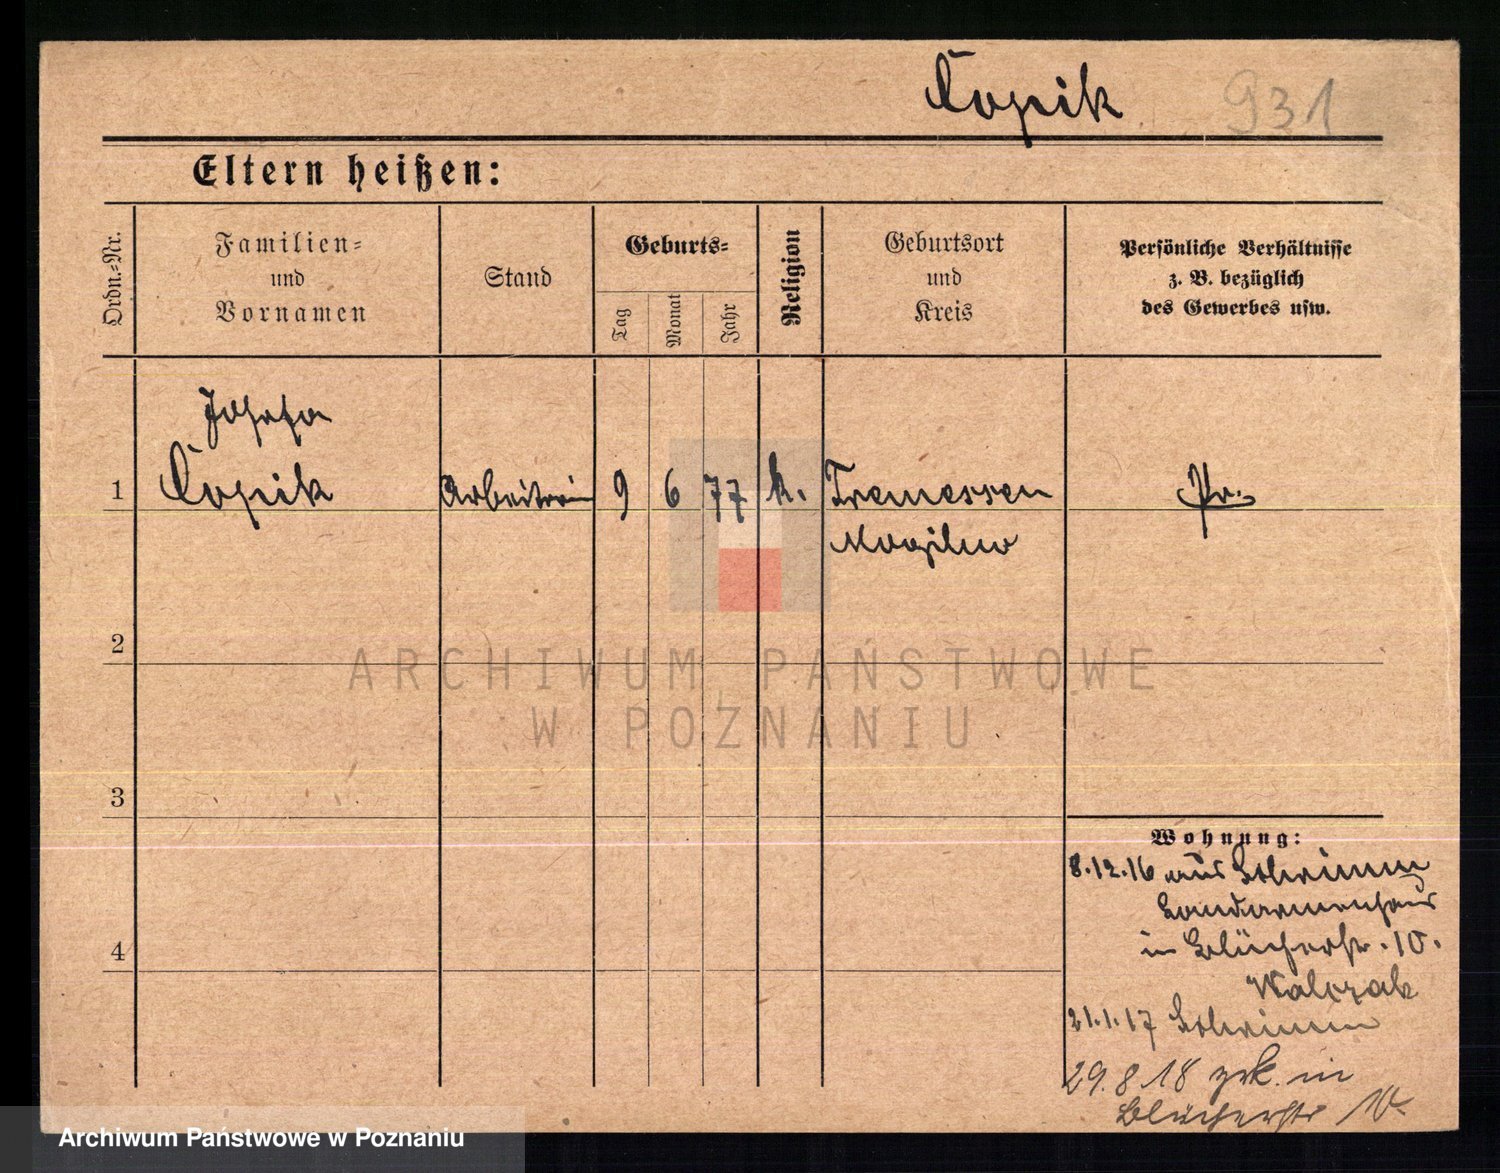 Čopik 931
Eltern heißen:
Ordn.=Nr.
Familien=
und
Vornamen
Stand
Geburts=
Tag
Monat
Jahr
Religion
Geburtsort
und
Kreis
Persönliche Verhältnisse
z. B. bezüglich
des Gewerbes usw.
Josefa
1 Čopik Arbeiterin 9 6 77 k. Tremessen Pr.
Mogilno
2
ARCHIWUM PAŃSTWOWE
W POZNANIU
3
Wohnung:
8.12.16 aus Schrimm
in Blücherstr. 10.
4
Walczak
21.1.17 Schrimm
29.8.18 zrk. in
Blücherstr 10.
Archiwum Państwowe w Poznaniu